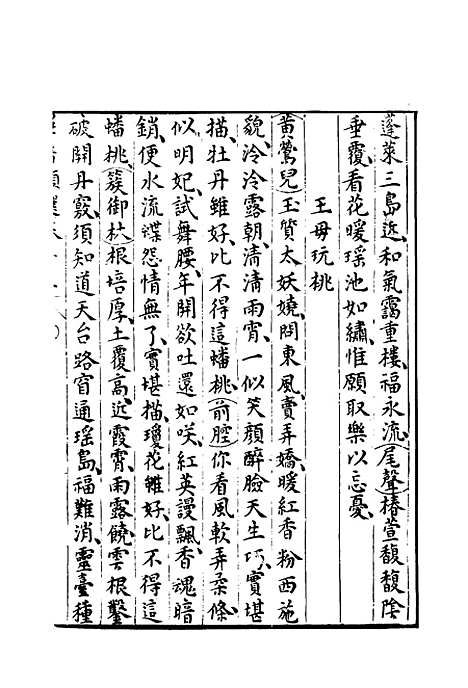 蓬萊三島近、和氣靄重樓、福永流、（尾聲）椿萱馥馥陰
垂覆、看花暖瑤池如繡、惟願取樂以忘憂、
王母玩桃
（黃鶯兒）玉質太妖嬈、閙東風、賣弄嬌、暖紅香粉西施
貌、泠泠露朝、清清雨宵、一似笑顏醉臉天生巧、實堪
描、牡丹雖好、比不得這蟠桃、（前腔）你看風軟弄柔條、
似明妃、試舞腰、年開欲吐還如咲、紅英謾飄、香魂暗
銷、便水流蝶怨情無了、實堪描、瓊花雖好、比不得這
蟠桃、（簇御林）根培厚、土覆高、近霞霄、雨露饒、雲根鑿
破開丹竅、須知道天台路窅通瑤島、福難消、靈臺種